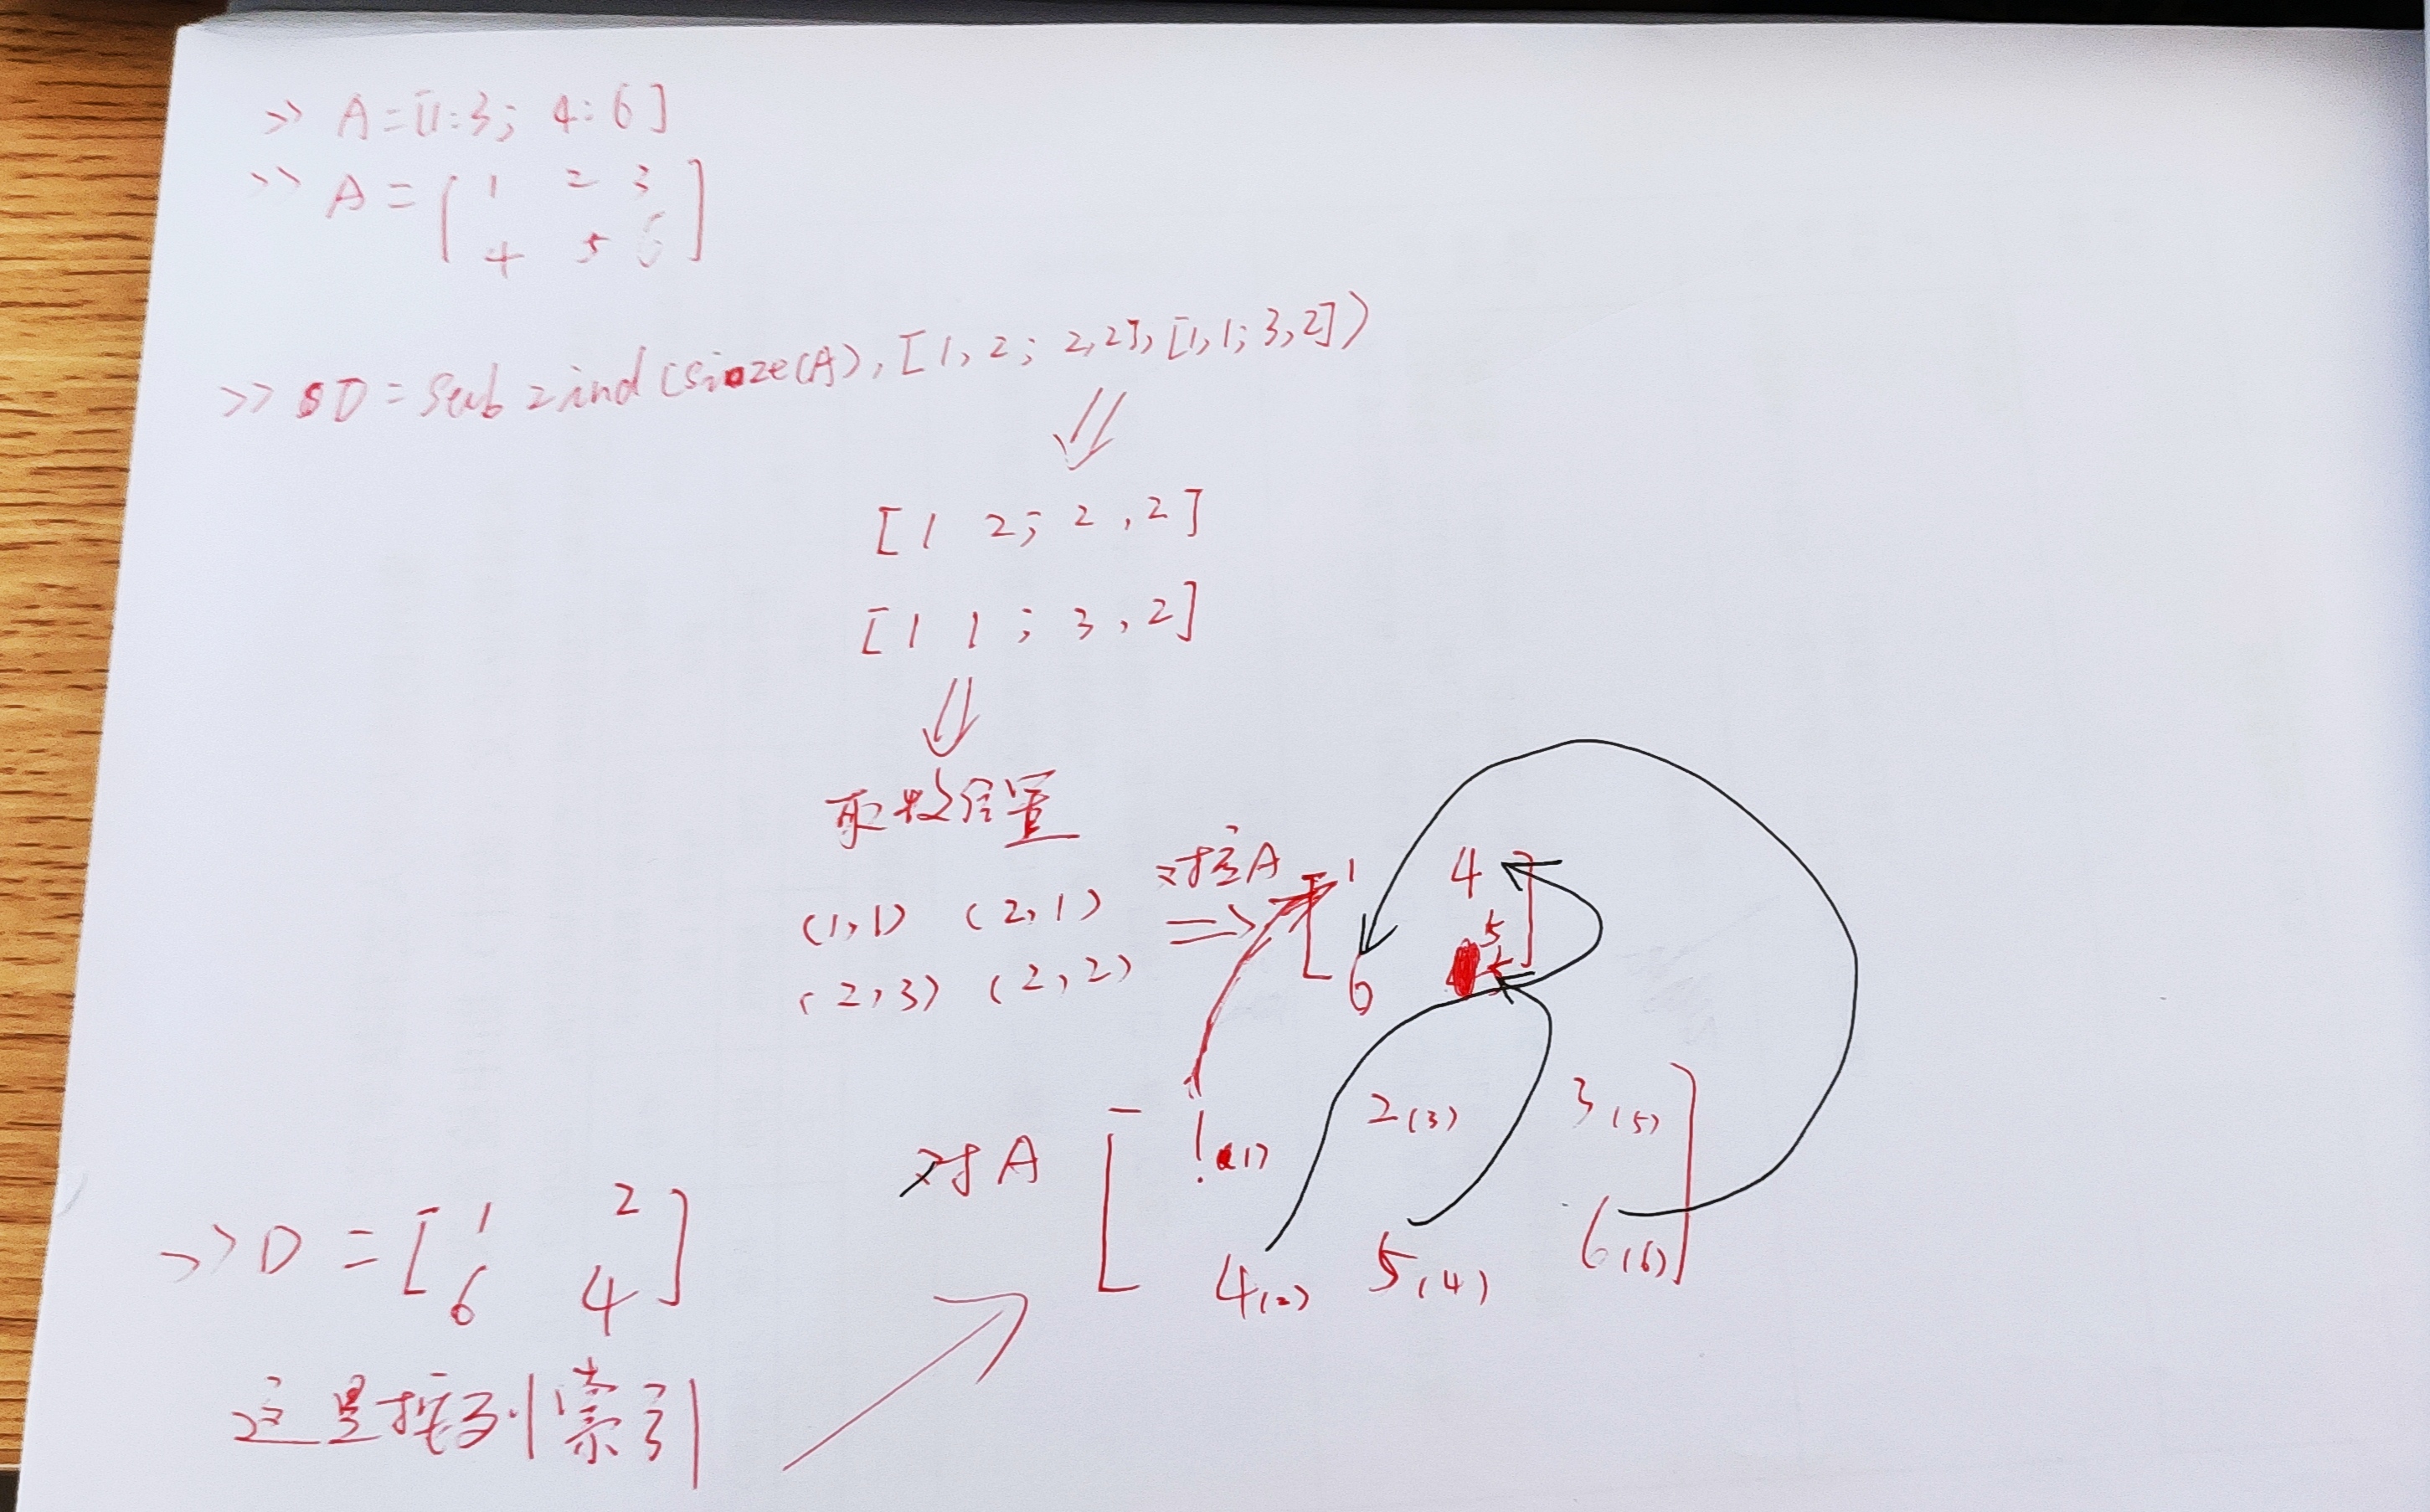 >> A=[1:3; 4:6]
>> A = [ 1 2 3
4 5 6 ]
>> D = sub2ind(size(A), [1,2; 2,2], [1,1; 3,2])
[1 2; 2,2]
[1 1; 3,2]
取数位置
(1,1) (2,1) 对应A => [ 1 4
(2,3) (2,2) 6 5 ]
对A [ 1(1) 2(3) 3(5)
4(2) 5(4) 6(6) ]
>> D = [ 1 2
6 4 ]
这里按列索引